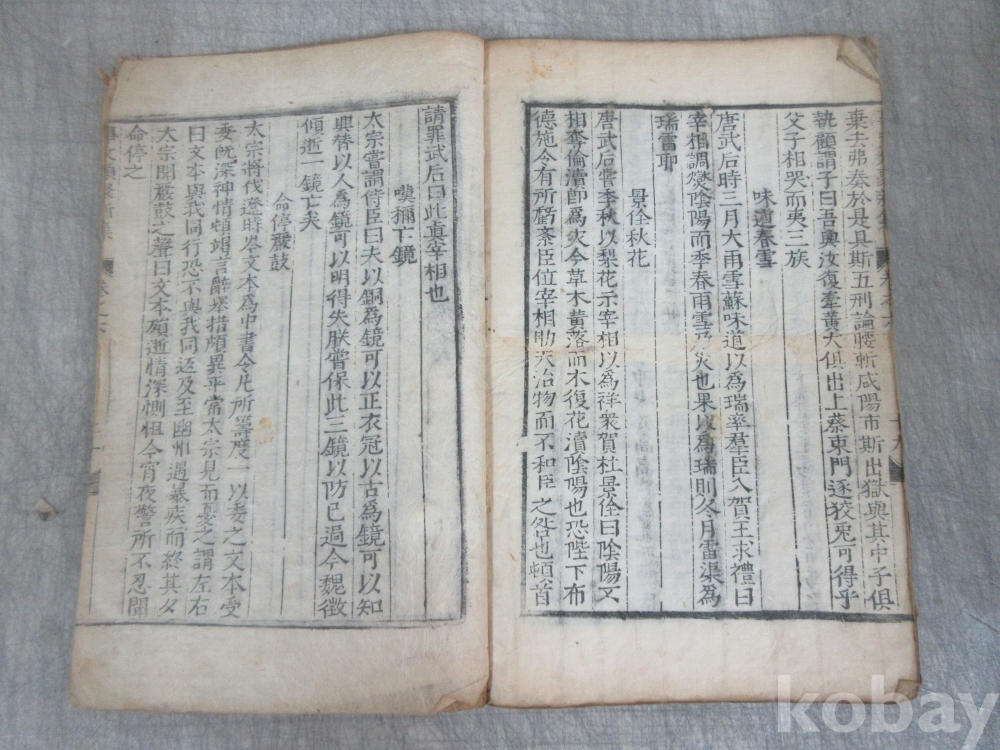 棄去弗奏於是具斯五刑論腰斬咸陽市斯出獄與其中子俱
執顧謂子曰吾與汝復牽黃犬俱出上蔡東門逐狡兎可得乎
父子相哭而夷三族
味道春雪
唐武后時三月大雨雪蘇味道以爲瑞率羣臣入賀王求禮曰
宰相調燮陰陽而季春雨雪乃災也果以爲瑞則冬月雷渠爲
瑞雷耶
景佺秋花
唐武后嘗季秋以梨花示宰相以爲祥衆賀杜景佺曰陰陽又
相奪倫瀆卽爲灾今草木黃落而木復花瀆陰陽也恐陛下布
德施令有所虧紊臣位宰相助天治物而不和臣之咎也頓首
請罪武后曰此眞宰相也
嘆彌亡鏡
太宗嘗謂侍臣曰夫以銅爲鏡可以正衣冠以古爲鏡可以知
興替以人爲鏡可以明得失朕嘗保此三鏡以防已過今魏徵
傾逝一鏡亡矣
命停嚴鼓
太宗將伐遼時岑文本爲中書令凡所籌度一以委之文本受
委旣深神情頓竭言辭擧措頗異平常太宗見而憂之謂左右
曰文本與我同行恐不與我同返及至幽州遇暴疾而終其夕
太宗聞嚴鼓之聲曰文本殞逝情深惻怛今宵夜警所不忍聞
命停之
kobay